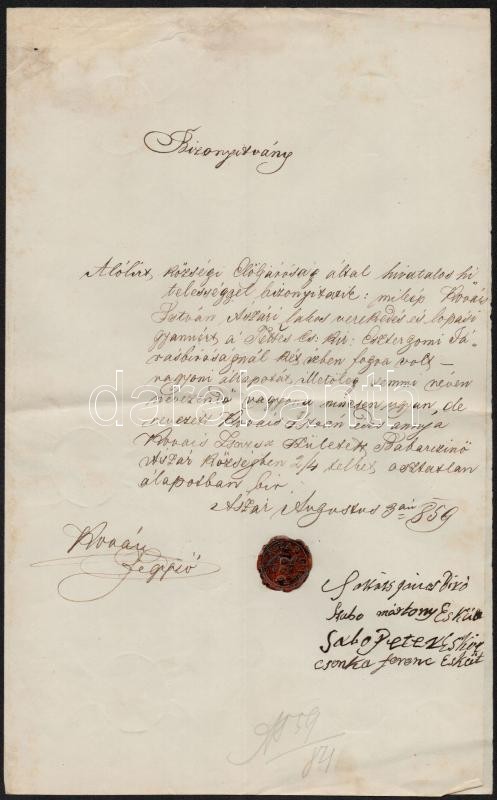 Bizonyitvány
Alólirt, községi Elöljáróság által hivatalos hi
telességgel bizonyitatik: mikép Kovács
István Aszári lakos verekedés és lopási
gyanuért a Tettes Cs: kir: Esztergomi Já-
rásbiróságnál két izben fogva volt –
vagyoni állapotát illetőleg semmi néven
nevezendő vagyona nincsen ugyan, de
nevezett Kovács István édes annya
Kovács született
Aszár Községben 2/4 telket osztatlan
álapotban bir
Aszár Augustus 3án 859
Kovács
Jegyző
darabanth
Takáts János Biró
Szabo mártony Esküt
Sabo Peter Esküt
csonka ferenc Esküt
59
84